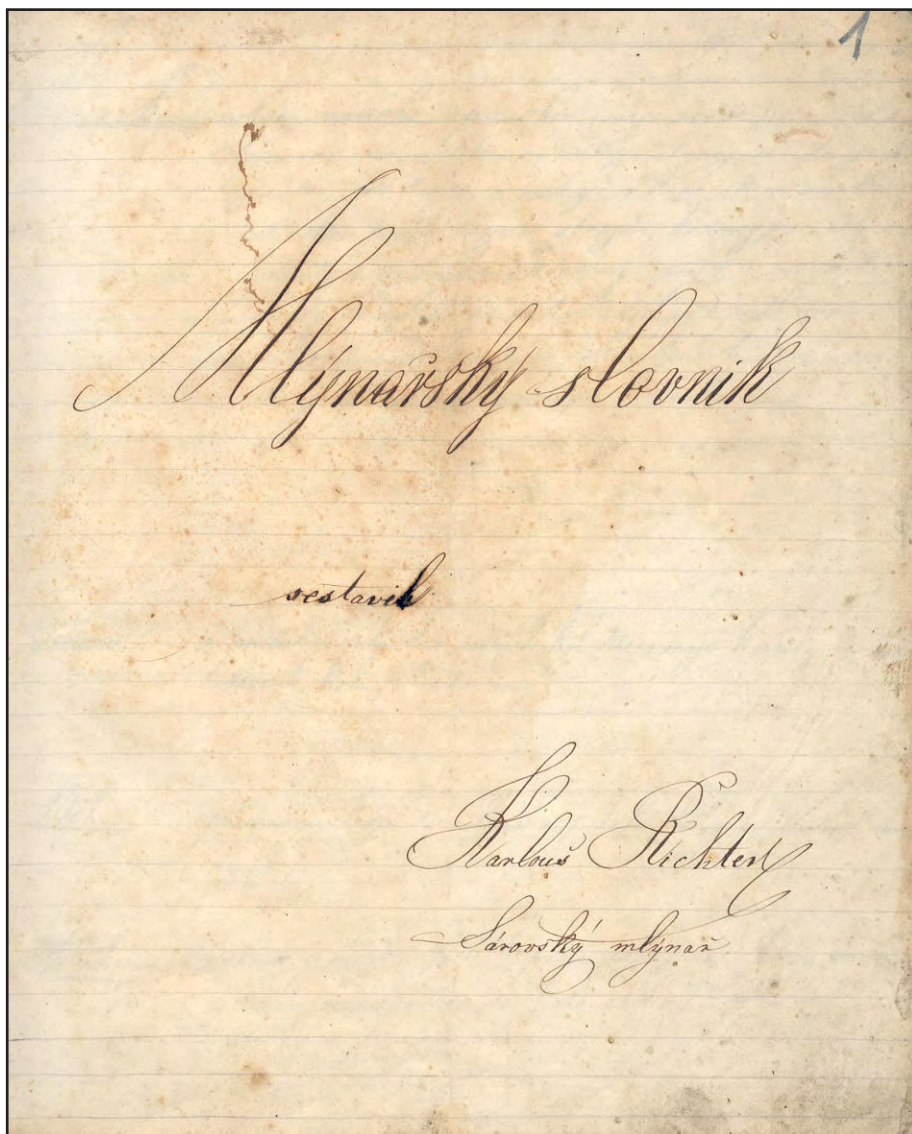 1
Mlýnařský slovník
sestavil
Karlouš Richter
Sárovský mlýnař